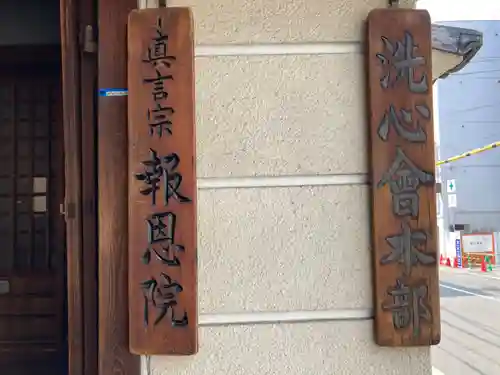 洗心會本部
真言宗
報恩院